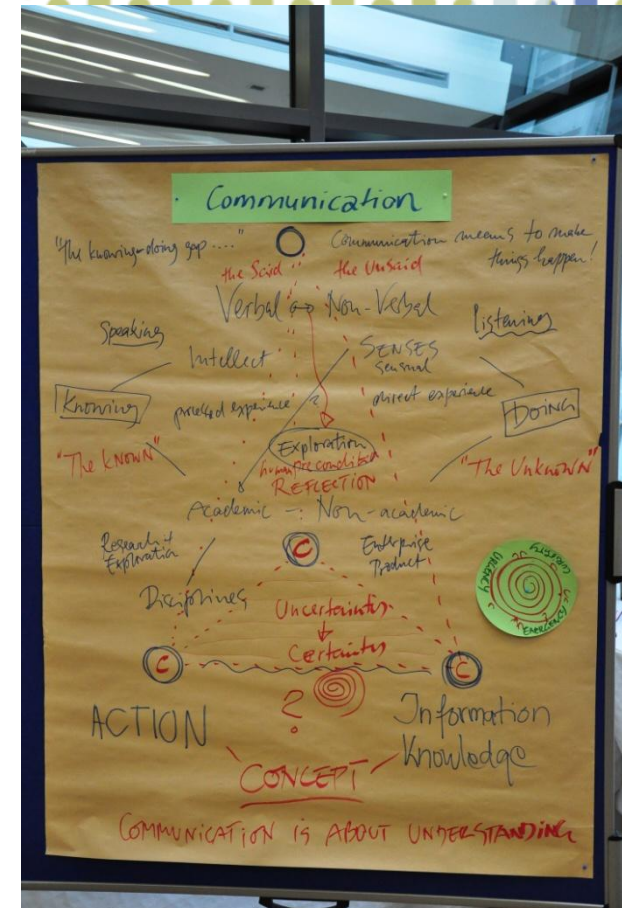 Communication
"The knowing-doing gap ...."
Communication means to make
things happen!
the Said the Unsaid
Verbal ↔ Non-Verbal
Speaking
Listening
Intellect
SENSES
sensual
Knowing
processed experience
direct experience
DOING
Exploration
"The KNOWN"
human precondition
"The UnknowN"
REFLECTION
Academic - Non-academic
Research &
Exploration
C
Enterprise
Product
Disciplines
URGENCY
EMERGENCY
Uncertainty
Certainty
C
C
?
ACTION
Information
Knowledge
CONCEPT
COMMUNICATION IS ABOUT UNDERSTANDING